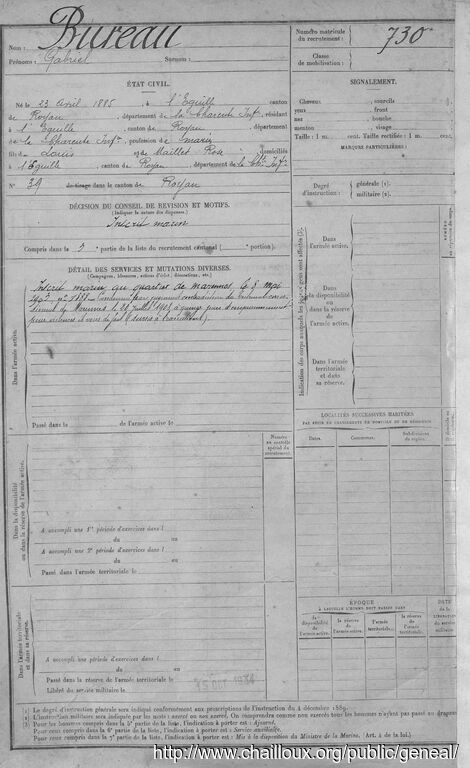 Nom : Bureau
Prénoms : Gabriel Surnom :
Numéro matricule du recrutement : 730
Classe de mobilisation :
ÉTAT CIVIL.
Né le 23 avril 1885, à l'Eguille, canton
de Royan, département de la Charente Infre, résidant
à l'Eguille, canton de Royan, département
de la Charente Infre, profession de marin
fils de Louis et de Maillet Rose, domiciliés
à l'Eguille, canton de Royan, département de la Chte Infre
N° 39 de tirage dans le canton de Royan
SIGNALEMENT.
Cheveux , sourcils
yeux , front
nez , bouche
menton , visage
Taille : 1 m. cent. Taille rectifiée : 1 m. cent.
MARQUES PARTICULIÈRES :
Degré d'instruction : générale (1).
militaire (2).
DÉCISION DU CONSEIL DE REVISION ET MOTIFS.
(Indiquer la nature des dispenses.)
Inscrit marin
Compris dans la partie de la liste du recrutement cantonal ( portion).
DÉTAIL DES SERVICES ET MUTATIONS DIVERSES.
(Campagnes, blessures, actions d'éclat, décorations, etc.)
Inscrit marin au quartier de marennes le
Dans l'armée active.
Passé dans la de l'armée active le
Indication des corps auxquels les jeunes gens sont affectés
Dans l'armée active.
Dans la disponibilité ou dans la réserve de l'armée active.
Dans l'armée territoriale et dans sa réserve.
LOCALITÉS SUCCESSIVES HABITÉES
PAR SUITE DE CHANGEMENTS DE DOMICILE OU DE RÉSIDENCE
Dates. Communes. Subdivisions de région.
Numéro au contrôle spécial du recrutement.
Dans la disponibilité ou dans la réserve de l'armée active.
A accompli une 1re période d'exercices dans l
du au
A accompli une 2e période d'exercices dans l
du au
Passé dans l'armée territoriale le
ÉPOQUE
À LAQUELLE L'HOMME DOIT PASSER DANS
la disponibilité de l'armée active. la réserve de l'armée active. l'armée territoriale. la réserve de l'armée territoriale.
DATE DE LA LIBÉRATION du service militaire
Dans l'armée territoriale et dans sa réserve.
A accompli une période d'exercices dans l
du au
Passé dans la réserve de l'armée territoriale le
Libéré du service militaire le
(1) Le degré d'instruction générale sera indiqué conformément aux prescriptions de l'instruction du 4 décembre 1889.
(2) L'instruction militaire sera indiquée par les mots : exercé ou non exercé. On comprendra comme non exercés tous les hommes n'ayant pas passé au drapeau
Pour les hommes compris dans la 5e partie de la liste, l'indication à porter est : Ajourné.
Pour ceux compris dans la 6e partie de la liste, l'indication à porter est : Service auxiliaire.
Pour ceux compris dans la 7e partie de la liste, l'indication à porter est : Mis à la disposition du Ministre de la Marine. (Art. 4 de la loi.)
http://www.chailloux.org/public/geneal/